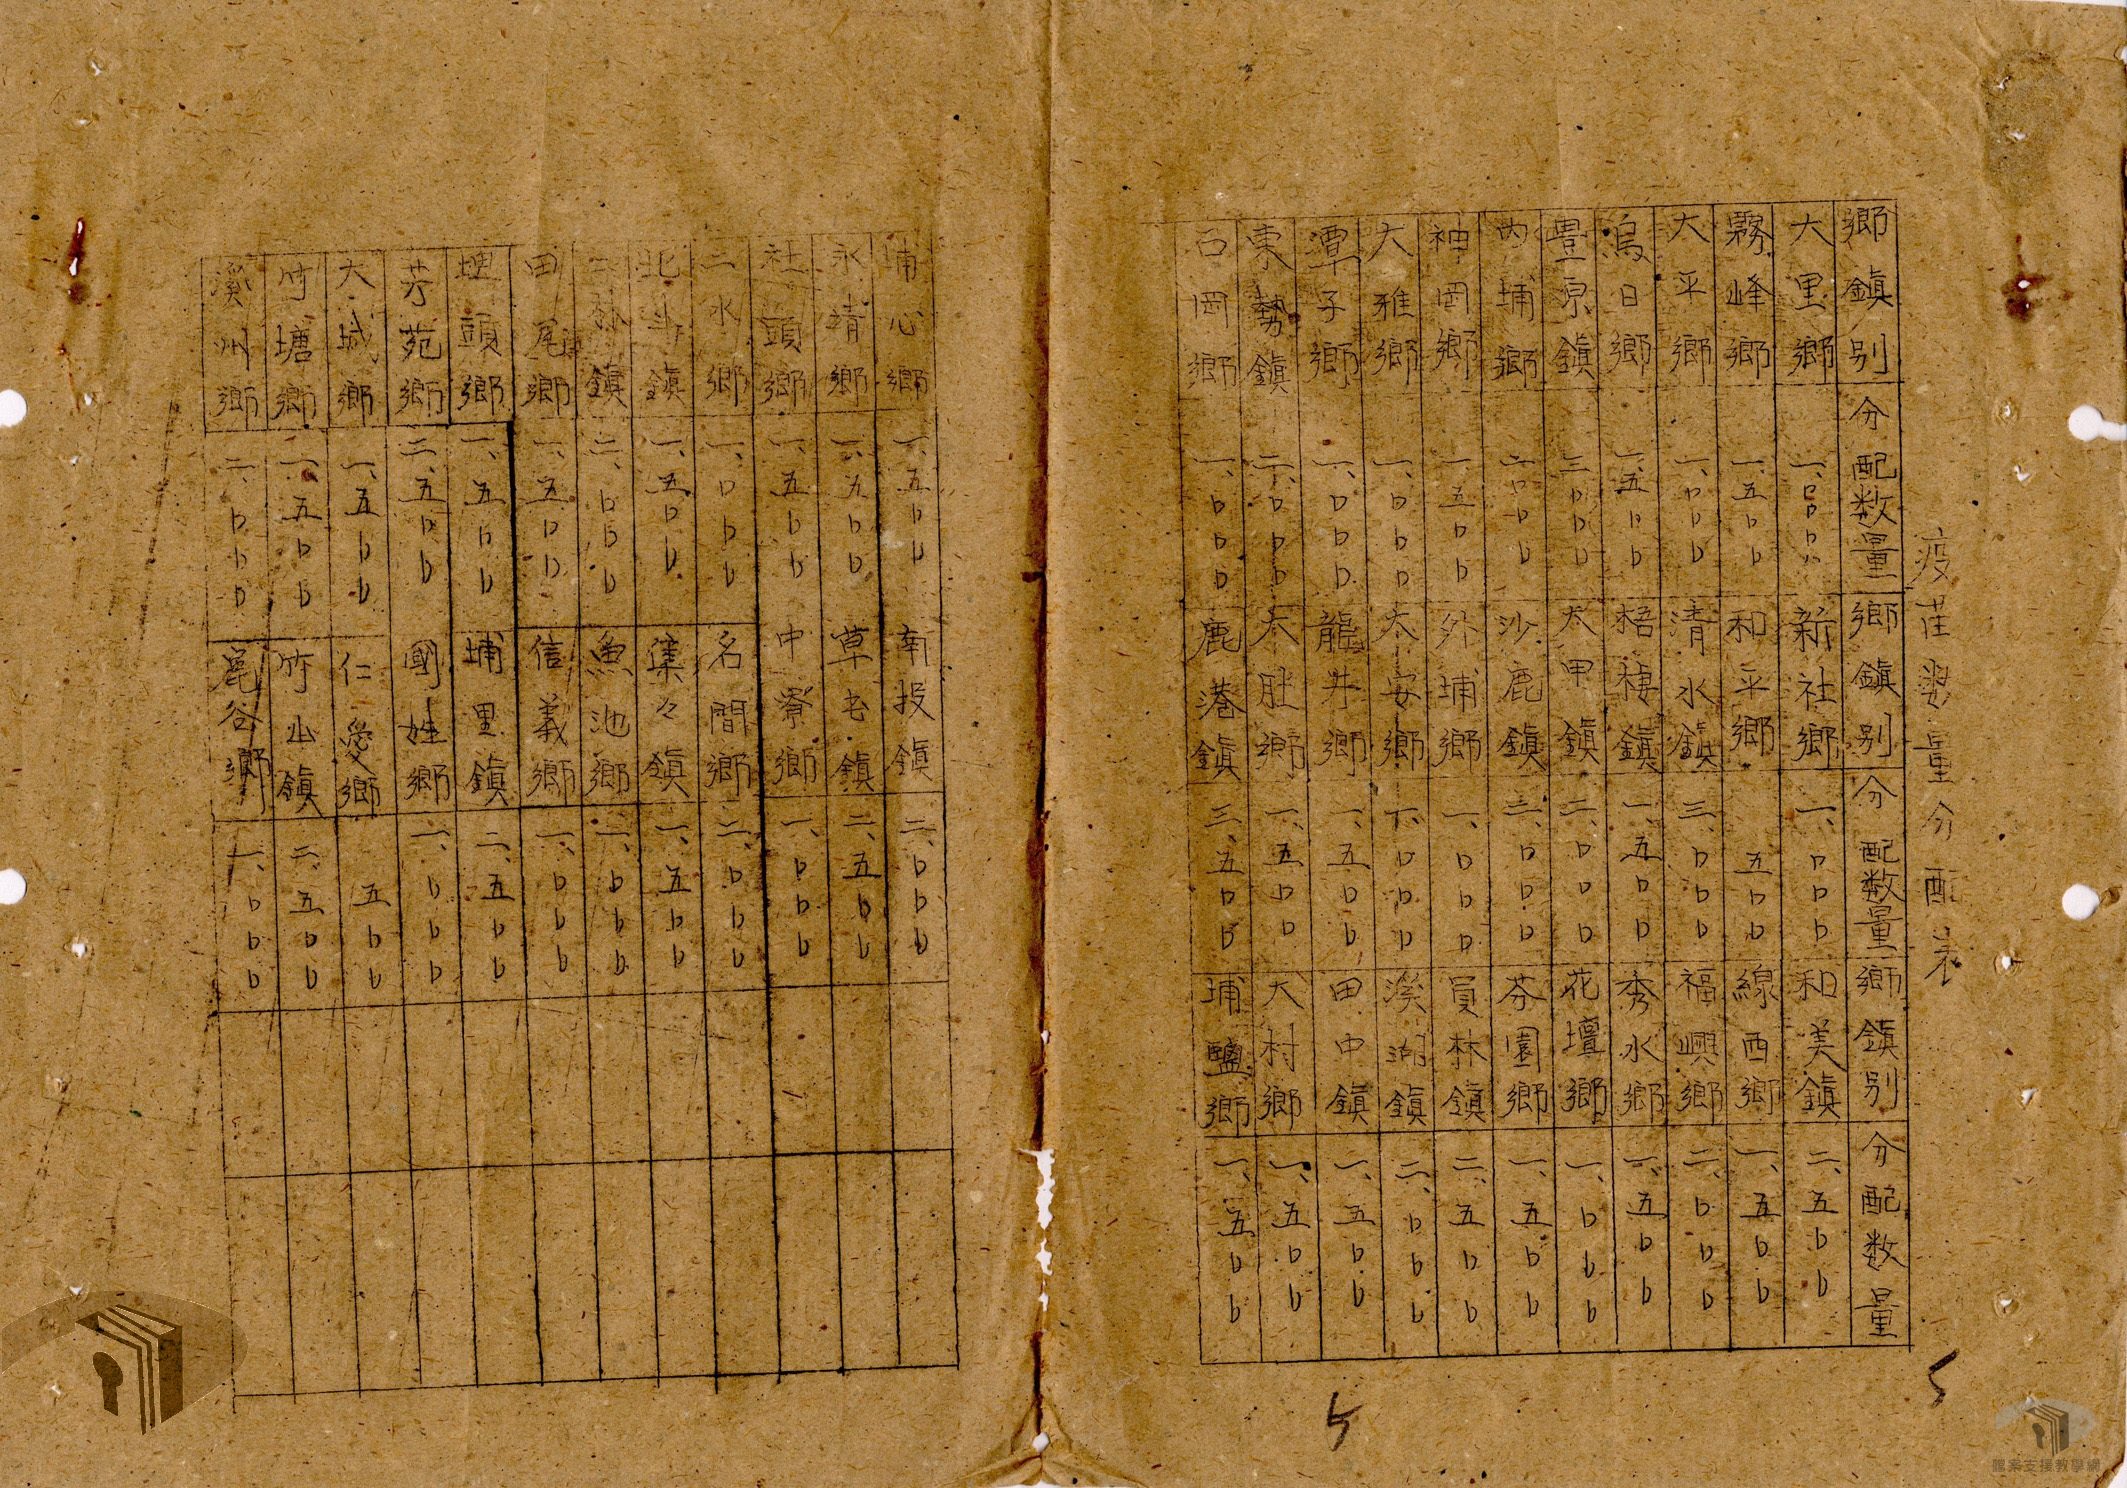 疫苗数量分配表
鄉鎮別 分配数量 鄉鎮別 分配数量 鄉鎮別 分配数量
大里鄉 一、〇〇〇 新社鄉 一、〇〇〇 和美鎮 二、五〇〇
霧峰鄉 一、五〇〇 和平鄉 五〇〇 線西鄉 一、五〇〇
大平鄉 一、〇〇〇 清水鎮 三、〇〇〇 福興鄉 二、〇〇〇
烏日鄉 一、五〇〇 梧棲鎮 一、五〇〇 秀水鄉 一、五〇〇
豊原鎮 三、〇〇〇 大甲鎮 二、〇〇〇 花壇鄉 一、〇〇〇
内埔鄉 二、〇〇〇 沙鹿鎮 三、〇〇〇 芬園鄉 一、五〇〇
神岡鄉 一、五〇〇 外埔鄉 一、〇〇〇 員林鎮 二、五〇〇
大雅鄉 一、〇〇〇 大安鄉 一、〇〇〇 溪湖鎮 二、〇〇〇
潭子鄉 一、〇〇〇 龍井鄉 一、五〇〇 田中鎮 一、五〇〇
東勢鎮 二、〇〇〇 大肚鄉 一、五〇〇 大村鄉 一、五〇〇
石岡鄉 一、〇〇〇 鹿港鎮 三、五〇〇 埔鹽鄉 一、五〇〇
5
5
埔心鄉 一、五〇〇 南投鎮 二、〇〇〇
永靖鄉 一、五〇〇 草屯鎮 二、五〇〇
社頭鄉 一、五〇〇 中寮鄉 一、〇〇〇
二水鄉 一、〇〇〇 名間鄉 二、〇〇〇
北斗鎮 一、五〇〇 集々鎮 一、五〇〇
林鎮 二、〇〇〇 魚池鄉 一、〇〇〇
田尾鄉 一、五〇〇 信義鄉 一、〇〇〇
埤頭鄉 一、五〇〇 埔里鎮 二、五〇〇
芳苑鄉 二、五〇〇 國姓鄉 一、〇〇〇
大城鄉 一、五〇〇 仁愛鄉 五〇〇
竹塘鄉 一、五〇〇 竹山鎮 二、五〇〇
溪州鄉 二、〇〇〇 鹿谷鄉 一、〇〇〇
檔案支援教學網